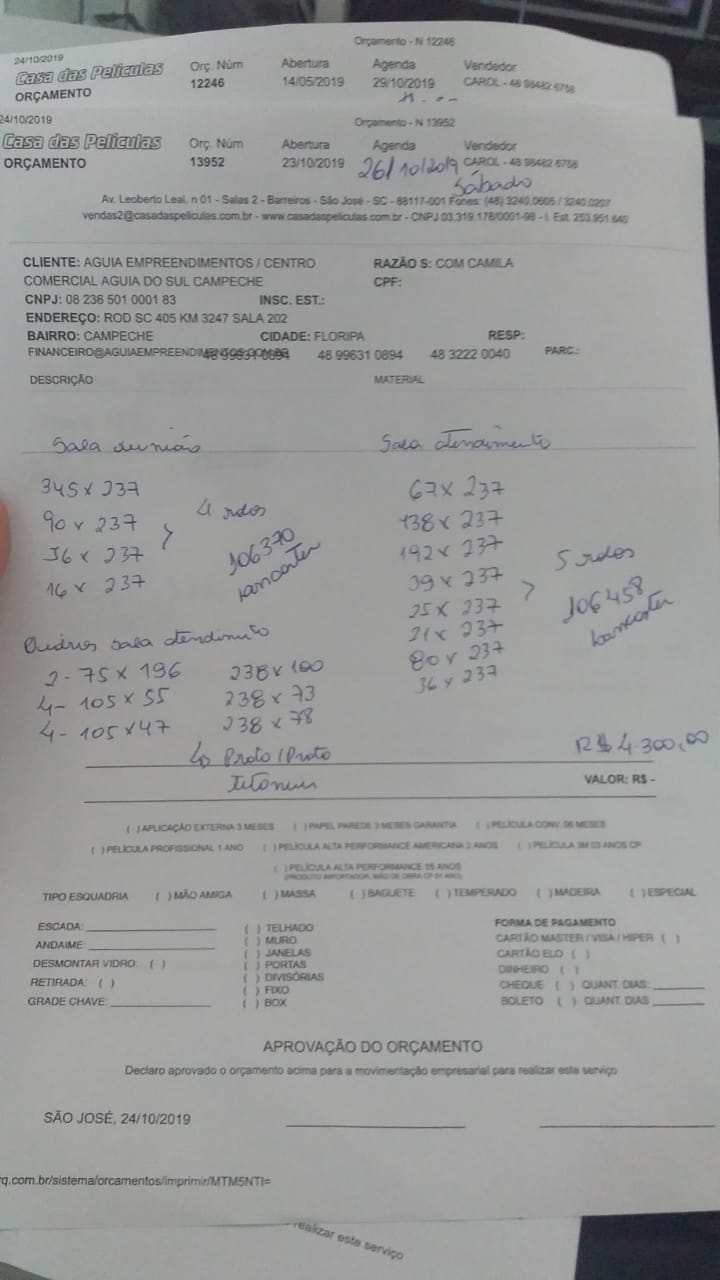 Orçamento - N 12246
24/10/2019
Casa das Películas
ORÇAMENTO
Orç. Núm Abertura Agenda Vendedor
12246 14/05/2019 29/10/2019 CAROL - 48 98482 6758
Orçamento - N 13952
24/10/2019
Casa das Películas
ORÇAMENTO
Orç. Núm Abertura Agenda Vendedor
13952 23/10/2019 26/10/2019 CAROL - 48 98482 6758
Sábado
Av. Leoberto Leal, n 01 - Salas 2 - Barreiros - São José - SC - 88117-001 Fones: (48) 3240.0605 / 3240.0207
vendas2@casadaspeliculas.com.br - www.casadaspeliculas.com.br - CNPJ 03.319.178/0001-98 - I. Est. 253.951.640
CLIENTE: AGUIA EMPREENDIMENTOS / CENTRO RAZÃO S: COM CAMILA
COMERCIAL AGUIA DO SUL CAMPECHE CPF:
CNPJ: 08 236 501 0001 83 INSC. EST.:
ENDEREÇO: ROD SC 405 KM 3247 SALA 202
BAIRRO: CAMPECHE CIDADE: FLORIPA RESP:
48 99631 0894 48 3222 0040 PARC.:
DESCRIÇÃO MATERIAL
Sala reunião Sala atendimento
345 x 237
90 x 237
36 x 237
16 x 237
4 rdos
106370
67 x 237
138 x 237
192 x 237
39 x 237
25 x 237
21 x 237
80 x 237
36 x 237
5 rdos
106458
Vidros sala atendimento
2 - 75 x 196 238 x 100
4 - 105 x 55 238 x 73
4 - 105 x 47 238 x 78
R$ 4.300,00
VALOR: R$ -
( ) APLICAÇÃO EXTERNA 3 MESES ( ) PAPEL PAREDE 3 MESES GARANTIA ( ) PELÍCULA CONV. 06 MESES
( ) PELÍCULA PROFISSIONAL 1 ANO ( ) PELÍCULA ALTA PERFORMANCE AMERICANA 2 ANOS ( ) PELÍCULA 3M 03 ANOS CP
( ) PELÍCULA ALTA PERFORMANCE 05 ANOS
TIPO ESQUADRIA ( ) MÃO AMIGA ( ) MASSA ( ) BAGUETE ( ) TEMPERADO ( ) MADEIRA ( ) ESPECIAL
ESCADA:
ANDAIME:
DESMONTAR VIDRO: ( )
RETIRADA: ( )
GRADE CHAVE:
( ) TELHADO
( ) MURO
( ) JANELAS
( ) PORTAS
( ) DIVISÓRIAS
( ) FIXO
( ) BOX
FORMA DE PAGAMENTO
CARTÃO MASTER / VISA / HIPER ( )
CARTÃO ELO ( )
DINHEIRO ( )
CHEQUE ( ) QUANT. DIAS:
BOLETO ( ) QUANT. DIAS
APROVAÇÃO DO ORÇAMENTO
Declaro aprovado o orçamento acima para a movimentação empresarial para realizar este serviço
SÃO JOSÉ, 24/10/2019
rq.com.br/sistema/orcamentos/imprimir/MTM5NTI=
realizar este serviço